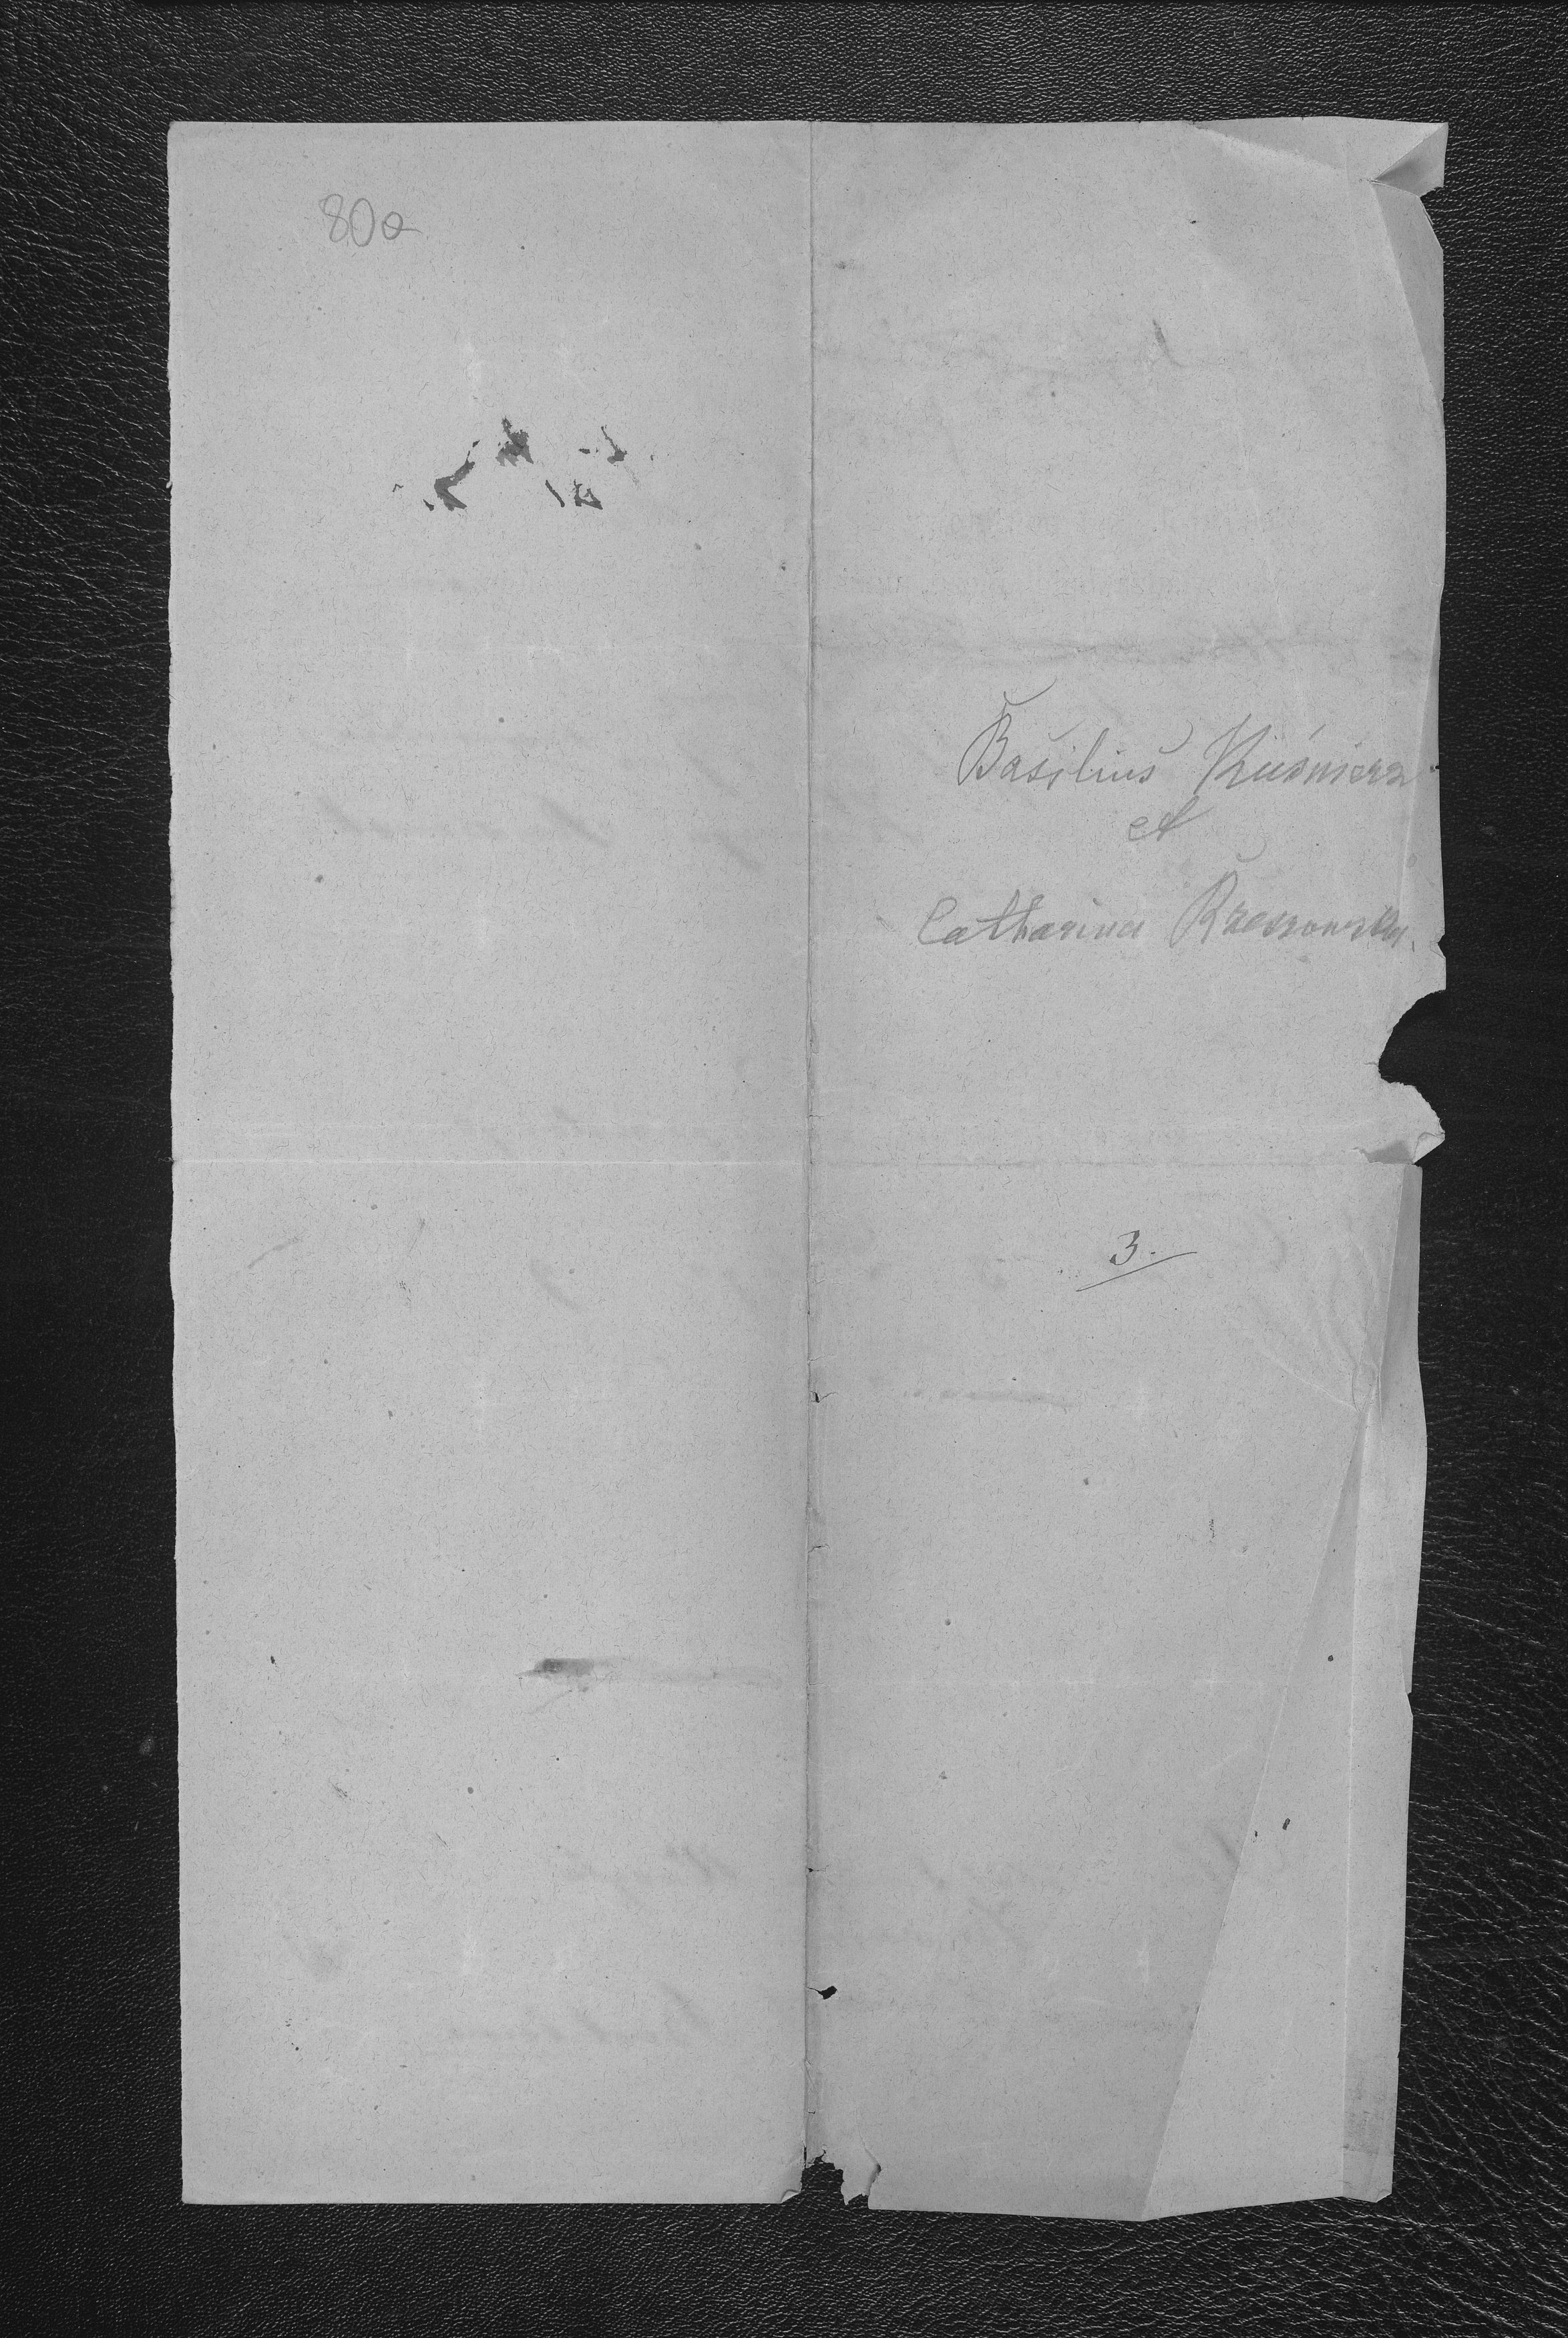 80a
Basilius Kuśnierz
et
Catharina Rzeszowska
3.